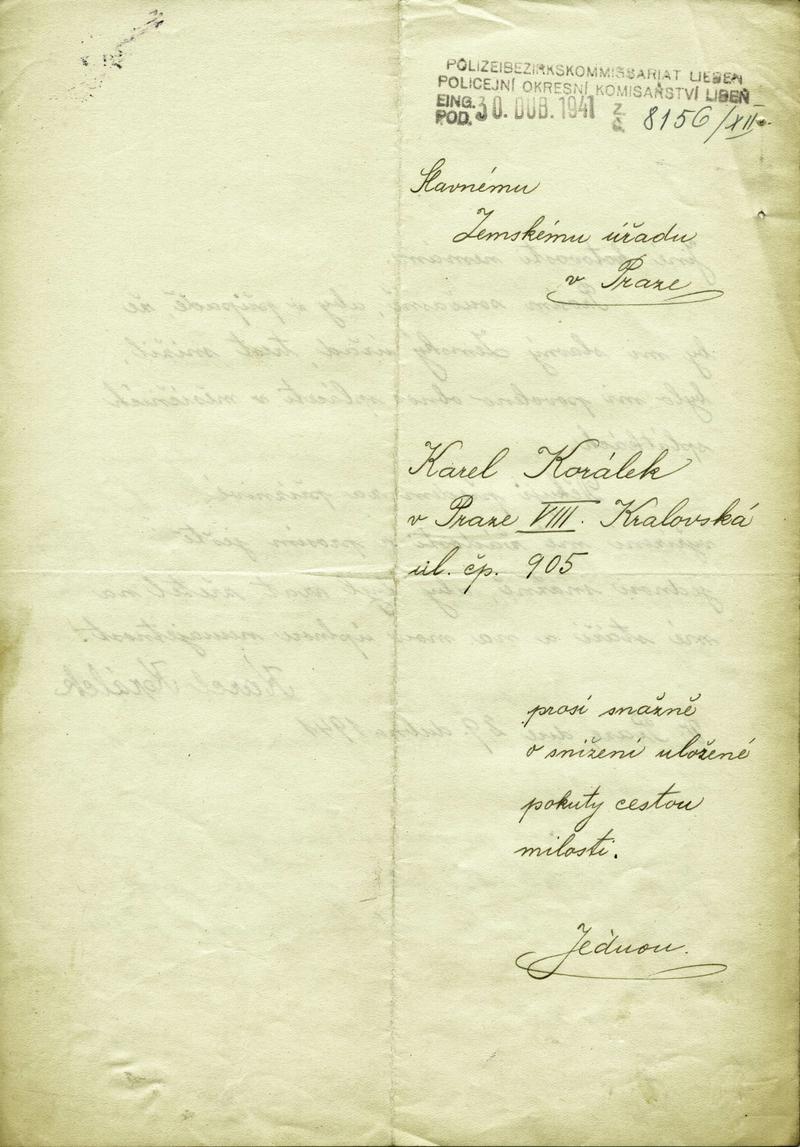 POLIZEIBEZIRKSKOMMISSARIAT LIEBEN
POLICEJNÍ OKRESNÍ KOMISAŘSTVÍ LIBEŇ
EING. POD. 30. DUB. 1941 Z. Č. 8156/XII-
Slavnému
Zemskému úřadu
v Praze
Karel Korálek
v Praze VIII. Kralovská
ul. čp. 905
prosí snažně
o snížení uložené
pokuty cestou
milosti.
Jednou.